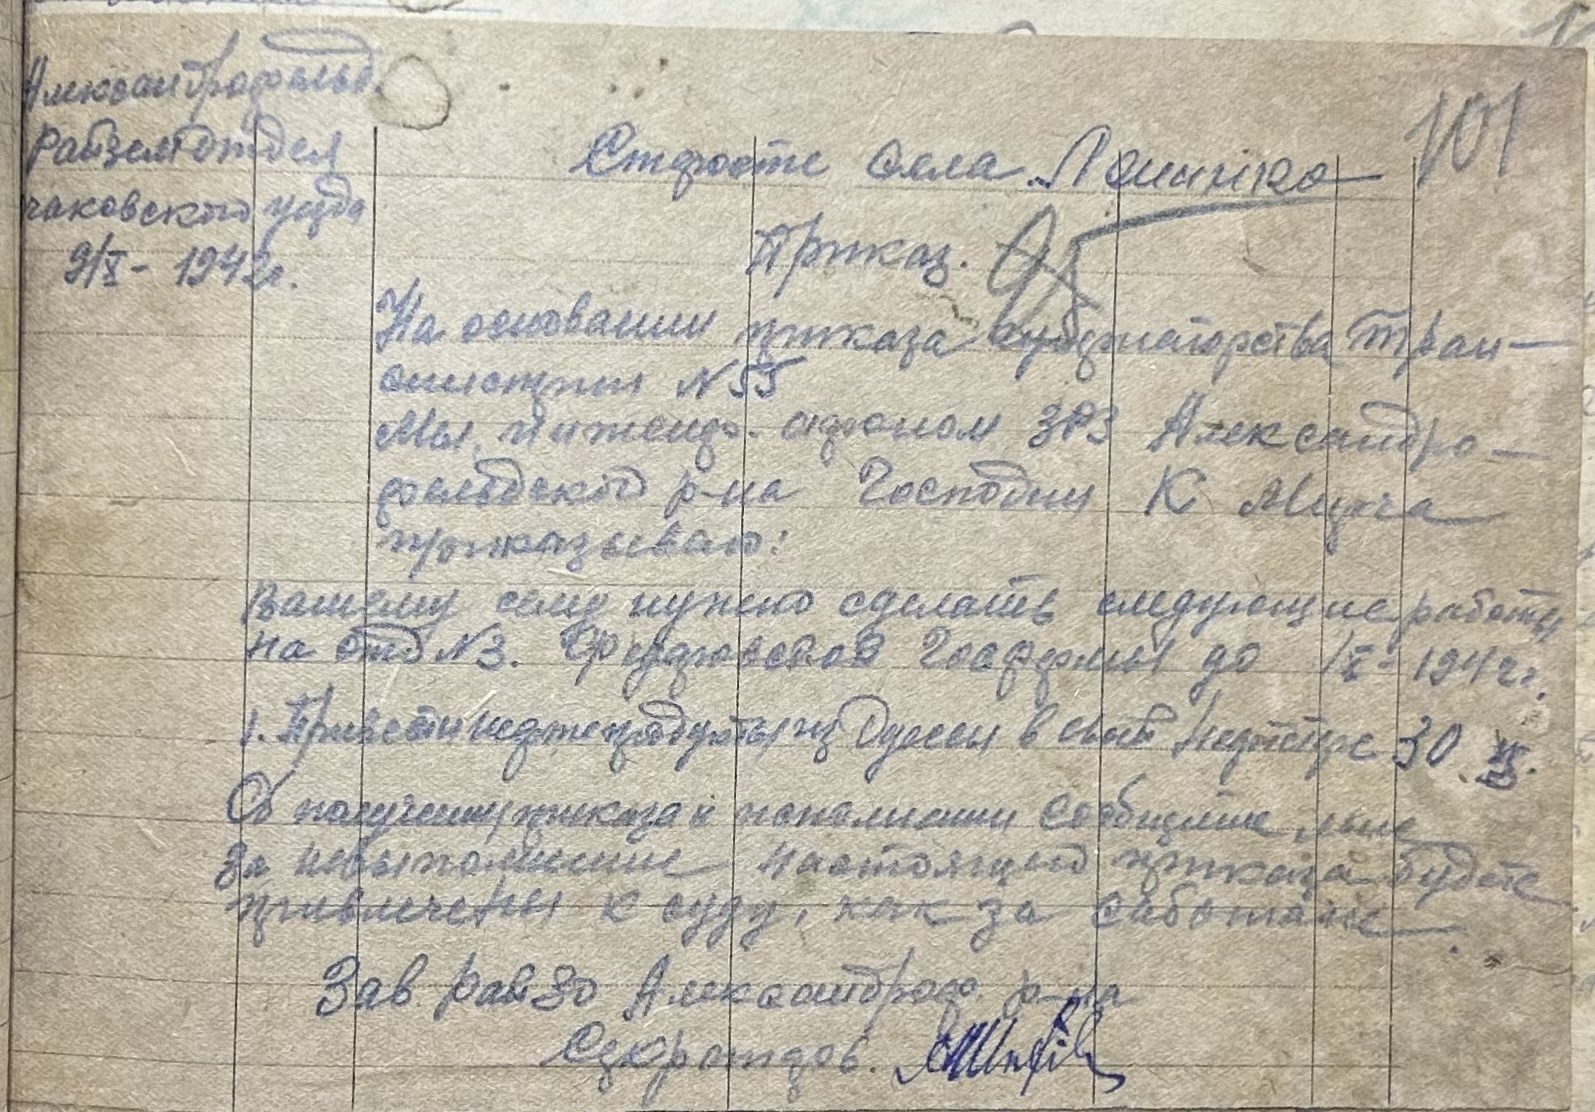 Александрофельд.
Райземотдел
чаковского уезда
9/X - 1942г.
101
Старосте села
Приказ.
На основании приказа губернаторства Тран-
снистрии N 55
Мы, инженер. агроном ЗРЗ Александро-
фельдского р-на Господин К
приказываю:
Вашему селу нужно сделать следующие работы
на отд N3. Госфермы до 1942г.
1. Привести нефтепродукты из Одессы в 30
О получении приказа и исполнении сообщите мне
За невыполнение настоящего приказа будете
привлечены к суду, как за саботаж
Зав РайЗо Александроф. р-на